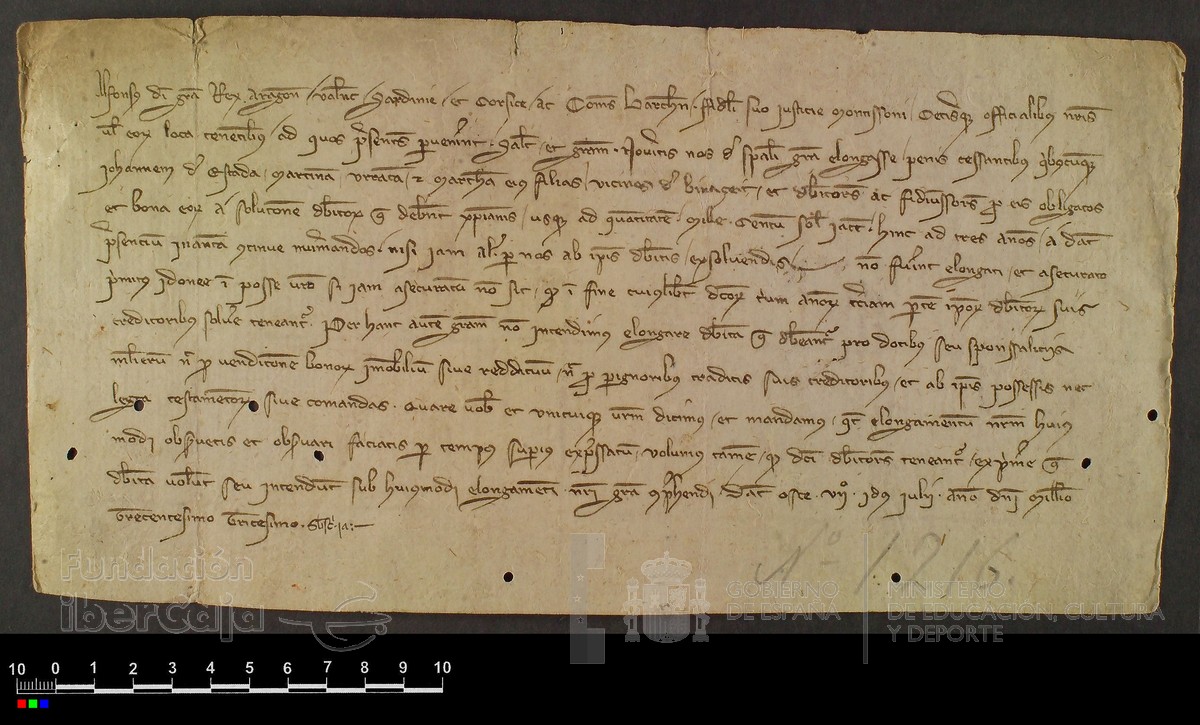 Alfonsus dei gra Rex Aragon Valenc Sardinie et Corsice ac Comes Barchn fideli suo justicie Montissoni Ceterisque officialibus nris
vel eorum loca tenentibus ad quos presentes pervenerint Salt et gram Noveritis nos de speciali gra elongasse penis cessantibus quibuscumque
Johannem de Estada Martinam Urracam et Marcham eius filias vicines de Binaget et debitores ac fideiussores pro eis obligatos
et bona eorum a solucione debitorum que debent xpianis usque ad quantitatem Mille Centum sol jacc hinc ad tres annos a dat
presencium in antea continue numerandos nisi iam al per nos ab ipis debitis exsolvendis non fuerint elongati et asecurato
primitus idonee in posse vro si iam asecuratum non sit quod in fine cuiuslibet dcorum trium annorum terciam partem iporum debitorum suis
creditoribus solvere teneantur Per hanc autem gram non intendimus elongare debita que debeantur pro dotibus seu sponsaliciis
mulierum nec pro vendicione bonorum immobilium sive reddituum nec pro pignoribus traditis suis creditoribus et ab ipis possessis nec
legata testamentorum sive comandas Quare vobis et unicuique vrm dicimus et mandamus quatenus elongamentum nrm huius
modi observetis et observari faciatis per tempus superius expressatum volumus tamen quod dci debitores teneantur exprimere que
debita volunt seu intendunt sub huiusmodi elongamenti nri gra comprehendi Dat Osce VIIo idus julii anno dni Millio
Trecentesimo Tricesimo
Nº 1216
Fundación
iberCaja
GOBIERNO
DE ESPAÑA
MINISTERIO
DE EDUCACIÓN, CULTURA
Y DEPORTE
10 0 1 2 3 4 5 6 7 8 9 10